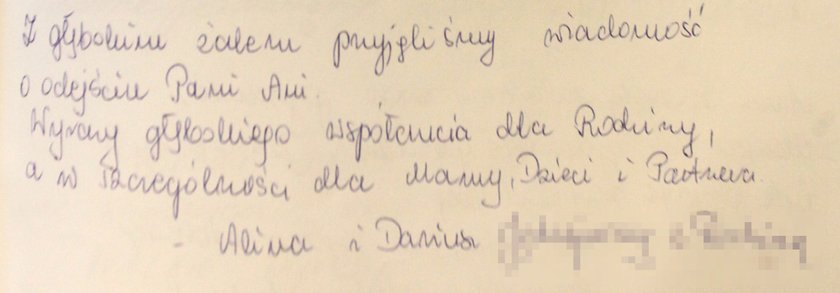 Z głębokim żalem przyjęliśmy wiadomość
o odejściu Pani Ani.
Wyrazy głębokiego współczucia dla Rodziny,
a w szczególności dla Mamy, Dzieci i Partnera.
- Alina i Dariusz